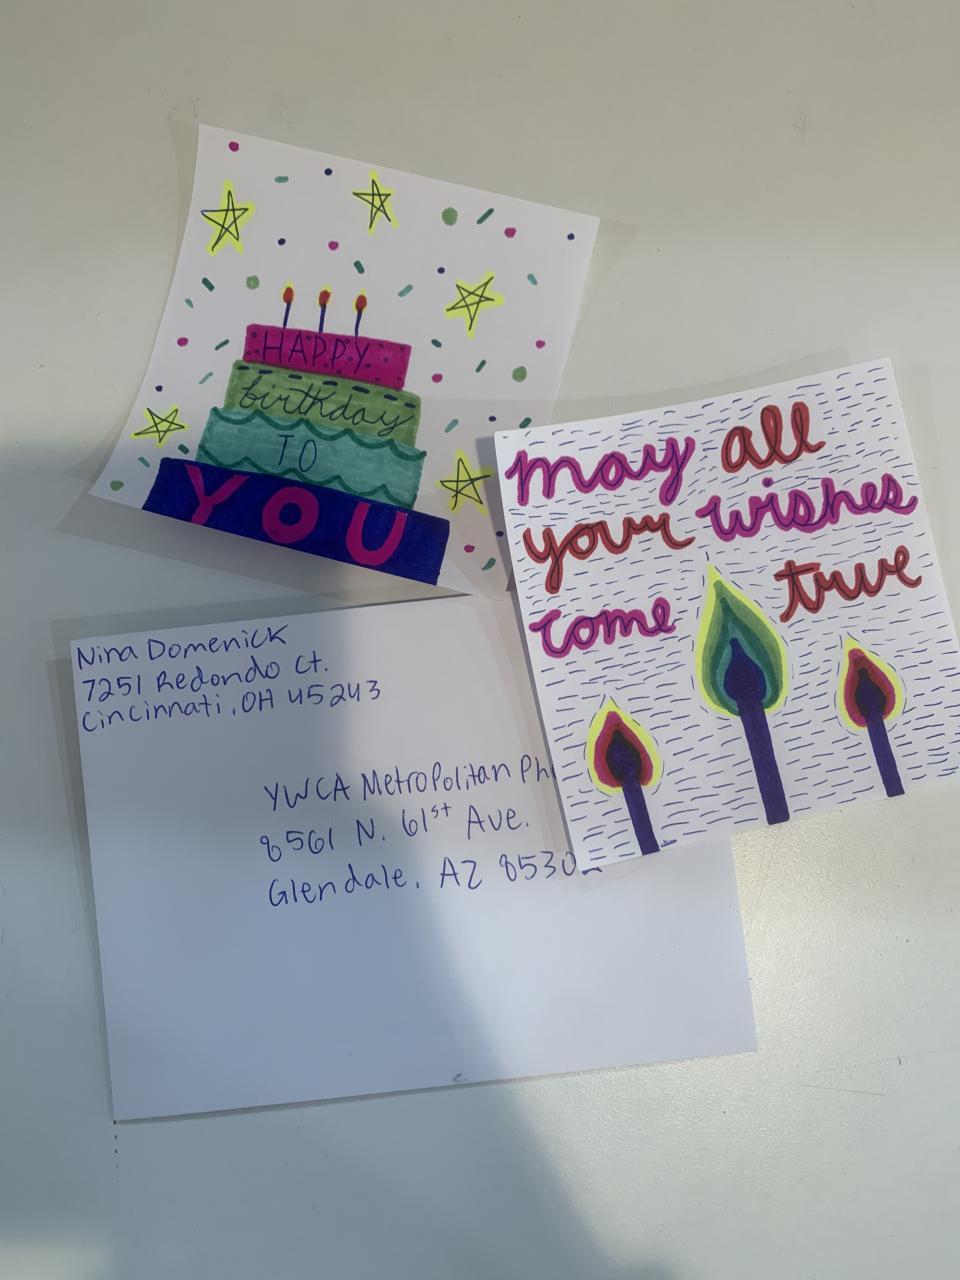 HAPPY
birthday
TO
YOU
may all
your wishes
come true
Nina Domenick
7251 Redondo Ct.
Cincinnati, OH 45243
YWCA Metropolitan
8561 N. 61st Ave.
Glendale, AZ